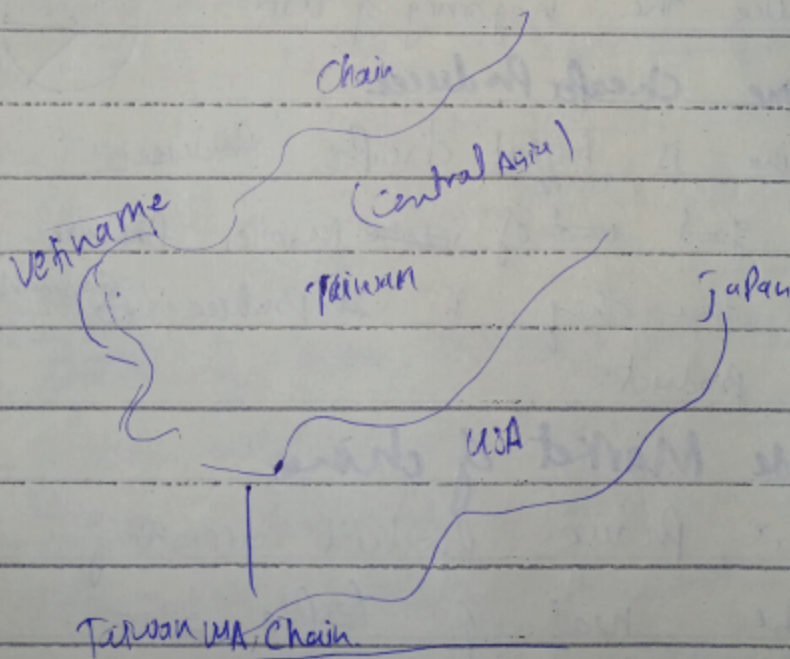 Chain
(central Asia)
Vetiname
Taiwan
Japan
USA
Taiwan USA, Chain.